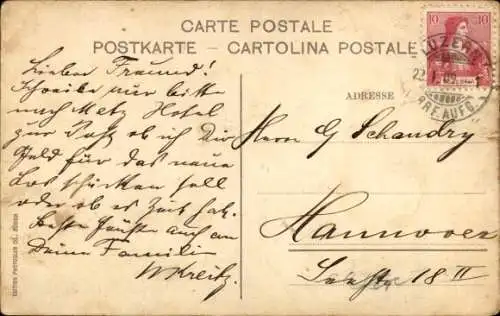 CARTE POSTALE
POSTKARTE – CARTOLINA POSTALE
10 10
LUZERN
22
BRF. AUFG.
ADRESSE
Lieber Freund!
Schreibe mir bitte
nach Metz Hotel
zur Post ob ich Dir
Geld für das neue
Los schicken soll
oder ob es Zeit hat.
Beste Grüße auch an
Deine Familie
W Kreitz
Herrn G Schandry
Hannover
18 II